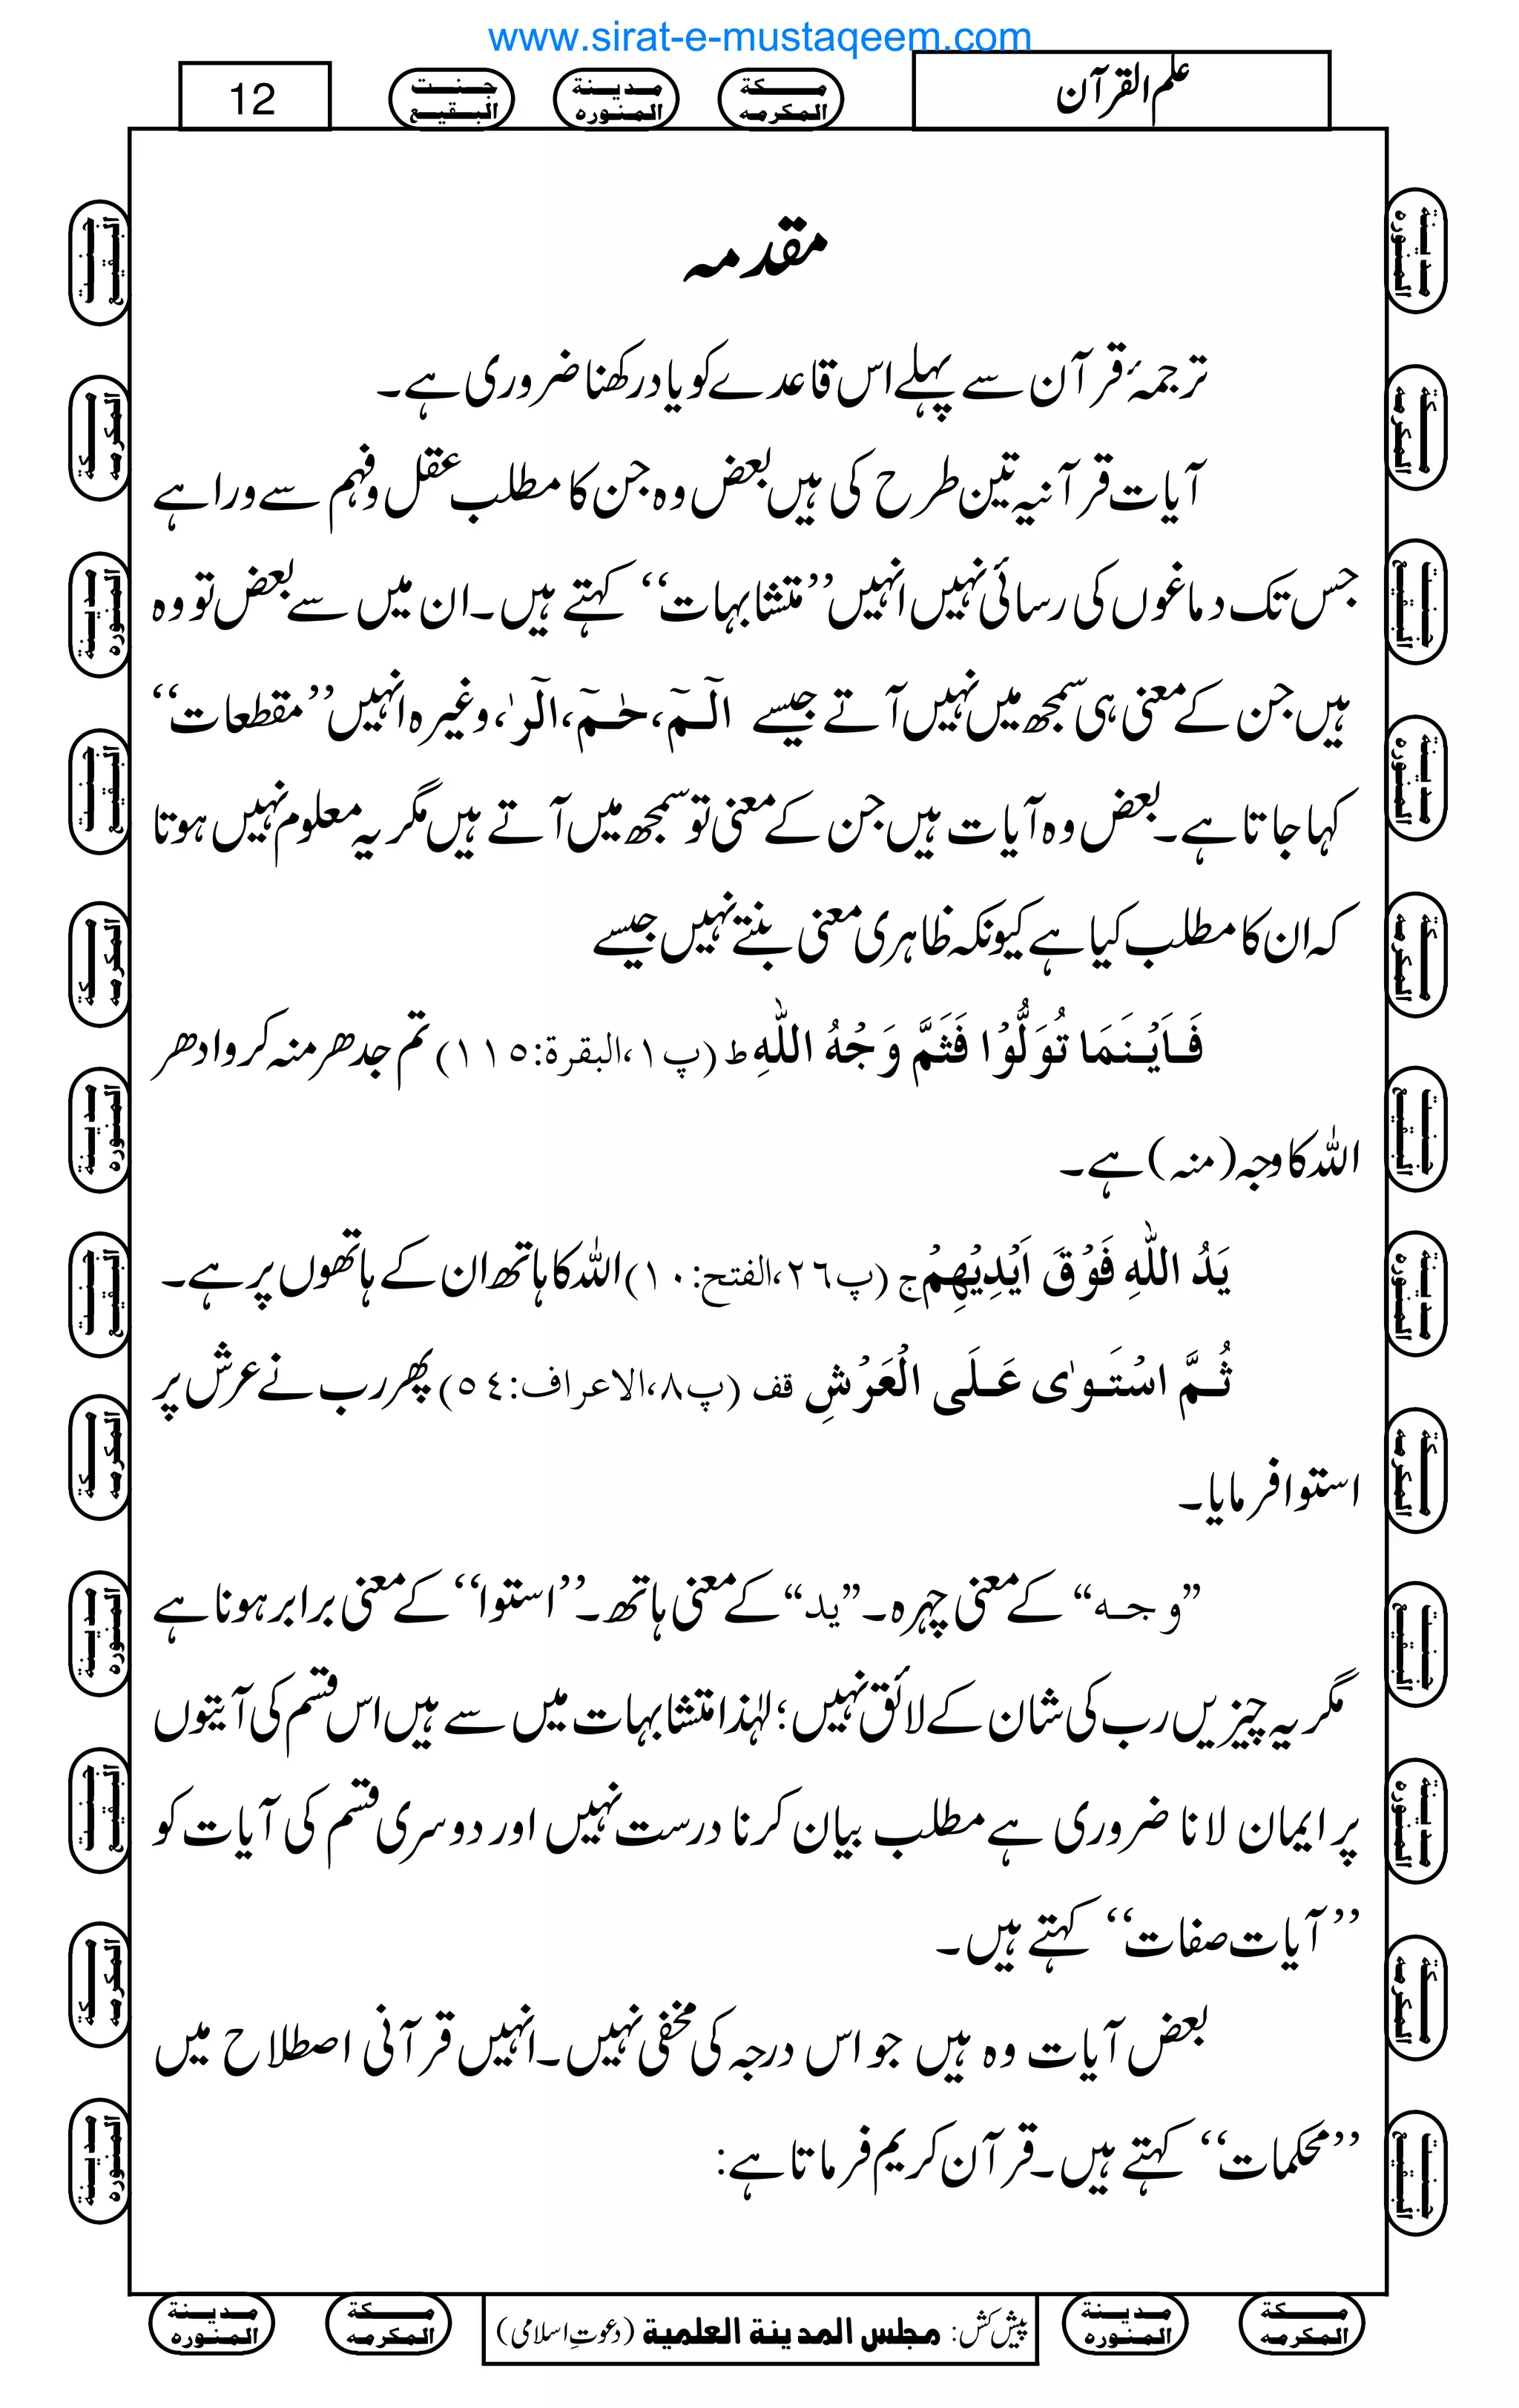 www.sirat-e-mustaqeem.com
علم القرآن
مكة المكرمه
مدينة المنوره
جنت البقيع
12
مقدمہ
ترجمۂ قرآن سے پہلے اس قاعدے کو یاد رکھنا ضروری ہے۔
آیات قرآنیہ تین طرح کی ہیں بعض وہ جن کا مطلب عقل و فہم سے ورا ہے
جس تک دماغوں کی رسائی نہیں انہیں ’’متشابہات‘‘ کہتے ہیں۔ ان میں سے بعض تو وہ
ہیں جن کے معنی ہی سمجھ میں نہیں آتے جیسے الٓـمّٓ، حٰـمٓ، الٓرٰ، وغیرہ انہیں ’’مقطعات‘‘
کہا جاتا ہے۔ بعض وہ آیات ہیں جن کے معنی تو سمجھ میں آتے ہیں مگر یہ معلوم نہیں ہوتا
کہ ان کا مطلب کیا ہے کیونکہ ظاہری معنی بنتے نہیں جیسے
فَاَیْنَمَا تُوَلُّوْا فَثَمَّ وَجْهُ اللّٰهِ ط (پ۱،البقرة:۱۱۵) تم جدھر منہ کرو ادھر
اللہ کا وجہ (منہ) ہے۔
یَدُ اللّٰهِ فَوْقَ اَیْدِیْهِمْ ج (پ۲٦،الفتح:۱۰) اللہ کا ہاتھ ان کے ہاتھوں پر ہے۔
ثُمَّ اسْتَوٰى عَلَى الْعَرْشِ قف (پ۸،الاعراف:۵٤) پھر رب نے عرش پر
استوا فرمایا۔
’’وجہ‘‘ کے معنی چہرہ۔ ’’ید‘‘ کے معنی ہاتھ۔ ’’استوا‘‘ کے معنی برابر ہونا ہے
مگر یہ چیزیں رب کی شان کے لائق نہیں؛ لہٰذا متشابہات میں سے ہیں اس قسم کی آیتوں
پر ایمان لانا ضروری ہے مطلب بیان کرنا درست نہیں اور دوسری قسم کی آیات کو
’’آیات صفات‘‘ کہتے ہیں۔
بعض آیات وہ ہیں جو اس درجہ کی مخفی نہیں۔ انہیں قرآنی اصطلاح میں
’’محکمات‘‘ کہتے ہیں۔ قرآن کریم فرماتا ہے:
مكة المكرمه
مدينة المنوره
پیش کش: مجلس المدينة العلمية (دعوتِ اسلامی)
مكة المكرمه
مدينة المنوره